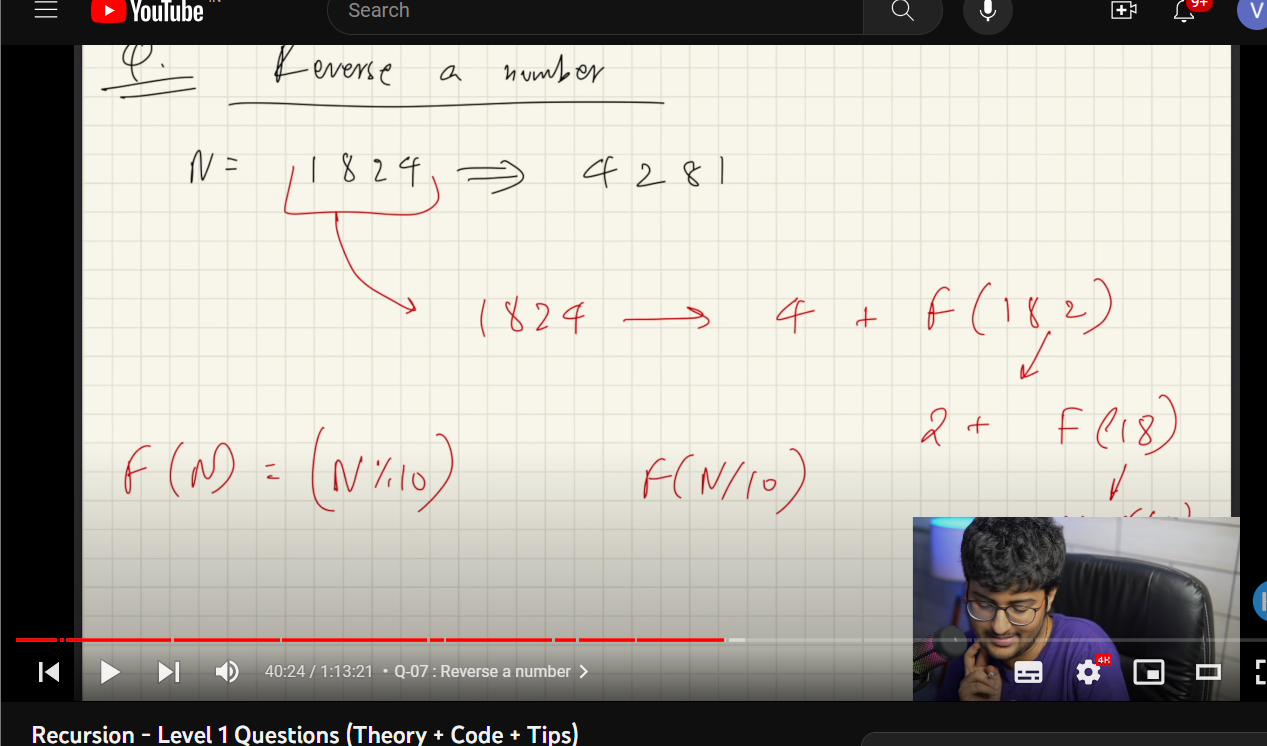 YouTube IN
Search
9+
V
Q. Reverse a number
N = 1824 ⟹ 4281
1824 ⟶ 4 + F(182)
2 + F(18)
F(N) = (N%10) F(N/10)
40:24 / 1:13:21 • Q-07 : Reverse a number
4K
Recursion - Level 1 Questions (Theory + Code + Tips)